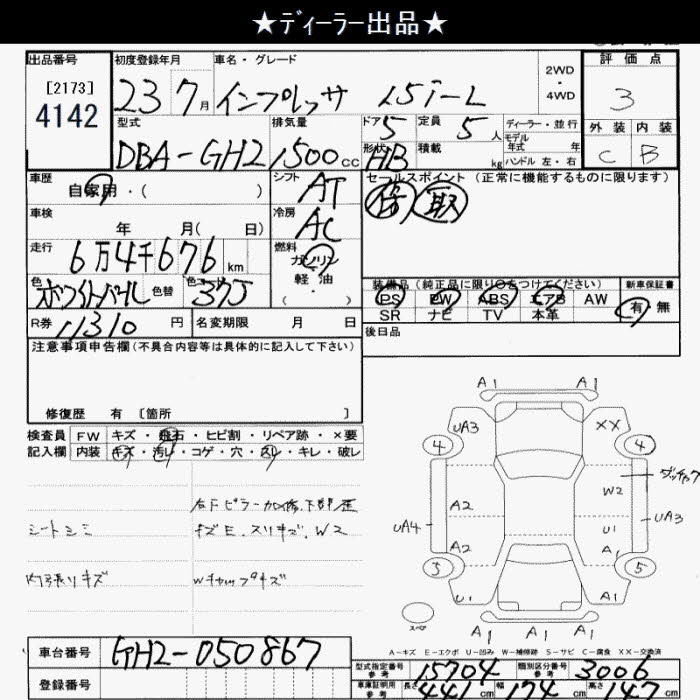 ★ディーラー出品★
出品番号 初度登録年月 車名・グレード 2WD・4WD 評価点
[2173]
4142
23 7月 インプレッサ 1.5i-L 3
型式 排気量 ドア 定員 ディーラー・並行 外装 内装
DBA-GH2 1500cc 5 5人 モデル年式 年 C B
形状 積載 kg ハンドル 左・右
HB
車歴 自家用・( ) シフト AT セールスポイント(正常に機能するものに限ります)
車検 年 月( 日) 冷房 AC 保 取
走行 6万4千676km 燃料 ガソリン
軽油
・( )
色 ホワイトパール 色替 色コード 37J
装備品(純正品に限り○をつけてください) 新車保証書
PS PW ABS エアB AW 有・無
SR ナビ TV 本革
R券 11310円 名変期限 月 日 後日品
注意事項申告欄(不具合内容等は具体的に記入して下さい)
修復歴 有 [箇所 ]
検査員 FW キズ・飛石・ヒビ割・リペア跡・×要
記入欄 内装 キズ・汚レ・コゲ・穴・スレ・キレ・破レ
シートシミ
キズE、スリキズ、W2
内張りキズ
Wキャップキズ
A1 A1
UA3 XX
4 4
A2 W2
UA4 U1 UA3
A2 A1
3 5
U1 A1
A1 A1
スペア
A-キズ E-エクボ U-凹み W-補修跡 S-サビ C-腐食 XX-交換済
車台番号 GH2-050867
登録番号
型式指定番号 参考 15704 類別区分番号 参考 3006
車庫証明用 参考 長さ 441cm 幅 174cm 高さ 147cm